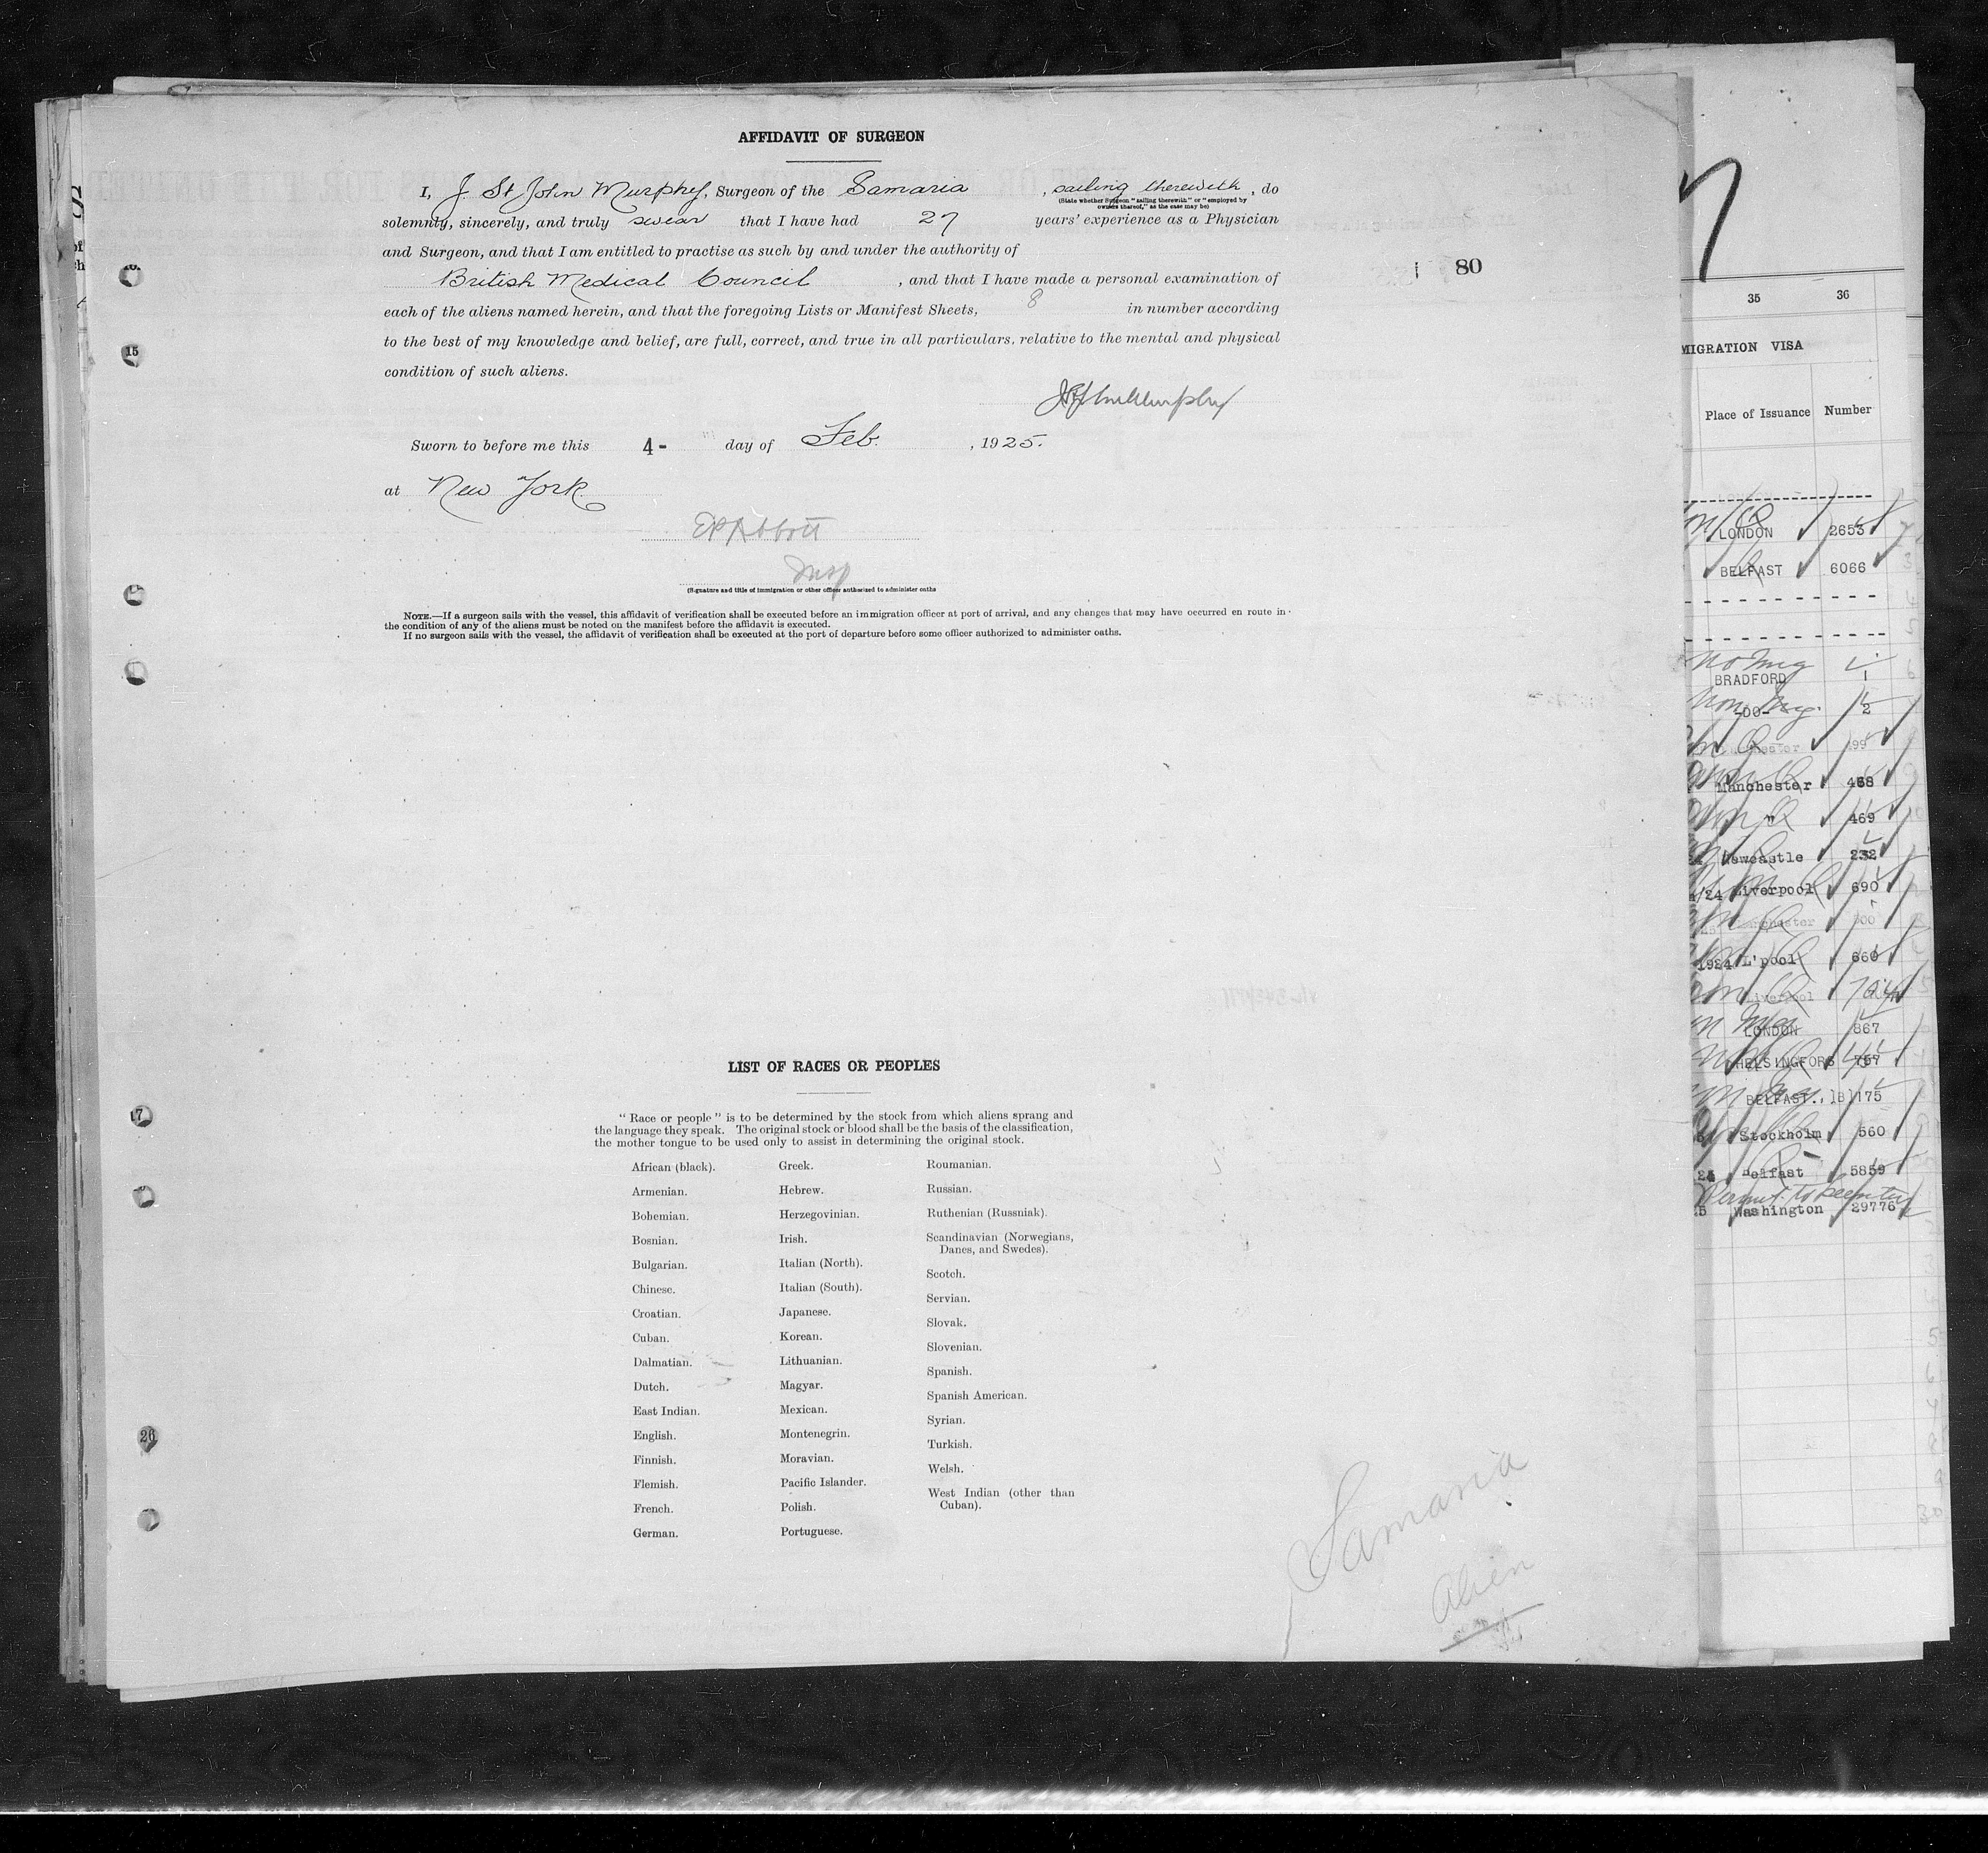 AFFIDAVIT OF SURGEON
I, J. St. John Murphy, Surgeon of the Samaria, sailing therewith, do
(State whether Surgeon "sailing therewith" or "employed by
owners thereof," as the case may be)
solemnly, sincerely, and truly swear that I have had 27 years' experience as a Physician
and Surgeon, and that I am entitled to practise as such by and under the authority of
British Medical Council, and that I have made a personal examination of
80
each of the aliens named herein, and that the foregoing Lists or Manifest Sheets, 8 in number according
to the best of my knowledge and belief, are full, correct, and true in all particulars, relative to the mental and physical
condition of such aliens.
J St John Murphy
Sworn to before me this 4- day of Feb., 1925.
at New York
EP Abbott
Insp
(Signature and title of immigration or other officer authorized to administer oaths
NOTE.—If a surgeon sails with the vessel, this affidavit of verification shall be executed before an immigration officer at port of arrival, and any changes that may have occurred en route in
the condition of any of the aliens must be noted on the manifest before the affidavit is executed.
If no surgeon sails with the vessel, the affidavit of verification shall be executed at the port of departure before some officer authorized to administer oaths.
LIST OF RACES OR PEOPLES
"Race or people" is to be determined by the stock from which aliens sprang and
the language they speak. The original stock or blood shall be the basis of the classification,
the mother tongue to be used only to assist in determining the original stock.
African (black).
Armenian.
Bohemian.
Bosnian.
Bulgarian.
Chinese.
Croatian.
Cuban.
Dalmatian.
Dutch.
East Indian.
English.
Finnish.
Flemish.
French.
German.
Greek.
Hebrew.
Herzegovinian.
Irish.
Italian (North).
Italian (South).
Japanese.
Korean.
Lithuanian.
Magyar.
Mexican.
Montenegrin.
Moravian.
Pacific Islander.
Polish.
Portuguese.
Roumanian.
Russian.
Ruthenian (Russniak).
Scandinavian (Norwegians,
Danes, and Swedes).
Scotch.
Servian.
Slovak.
Slovenian.
Spanish.
Spanish American.
Syrian.
Turkish.
Welsh.
West Indian (other than
Cuban).
Samaria
Alien
15
17
26
35 36
MIGRATION VISA
Place of Issuance Number
LONDON 2653
BELFAST 6066
BRADFORD 1
-DO- 2
Manchester 468
" 469
Newcastle 232
/24 Liverpool 690
1924 L'pool 660
Liverpool
LONDON 867
HELSINGFORS 757
BELFAST. 175
Stockholm 560
Belfast 5859
Permit to Reenter
25 Washington 29776